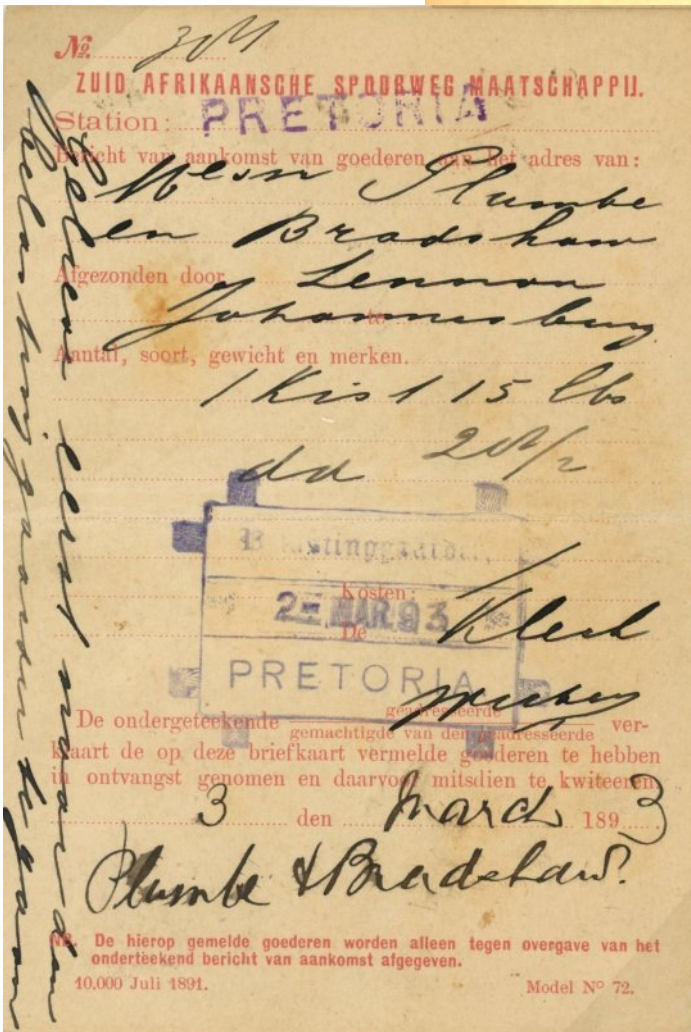 No. 304
ZUID AFRIKAANSCHE SPOORWEG MAATSCHAPPIJ.
Station: PRETORIA
Bericht van aankomst van goederen aan het adres van:
Messrs Plumbe
en Bradshaw
Afgezonden door Lennon
te Johannesburg
Aantal, soort, gewicht en merken.
1 Kist 115 lbs
do
Belastinggaarder,
Kosten:
2 = MAR.93
De Klerk
PRETORIA
De ondergeteekende geadresseerde
gemachtigde van den geadresseerde ver-
klaart de op deze briefkaart vermelde goederen te hebben
in ontvangst genomen en daarvoor mitsdien te kwiteeren.
3 den March 1893
Plumbe & Bradshaw.
NB. De hierop gemelde goederen worden alleen tegen overgave van het
onderteekend bericht van aankomst afgegeven.
10.000 Juli 1891. Model No 72.
Gelieve eerst naar den
belastinggaarder te gaan